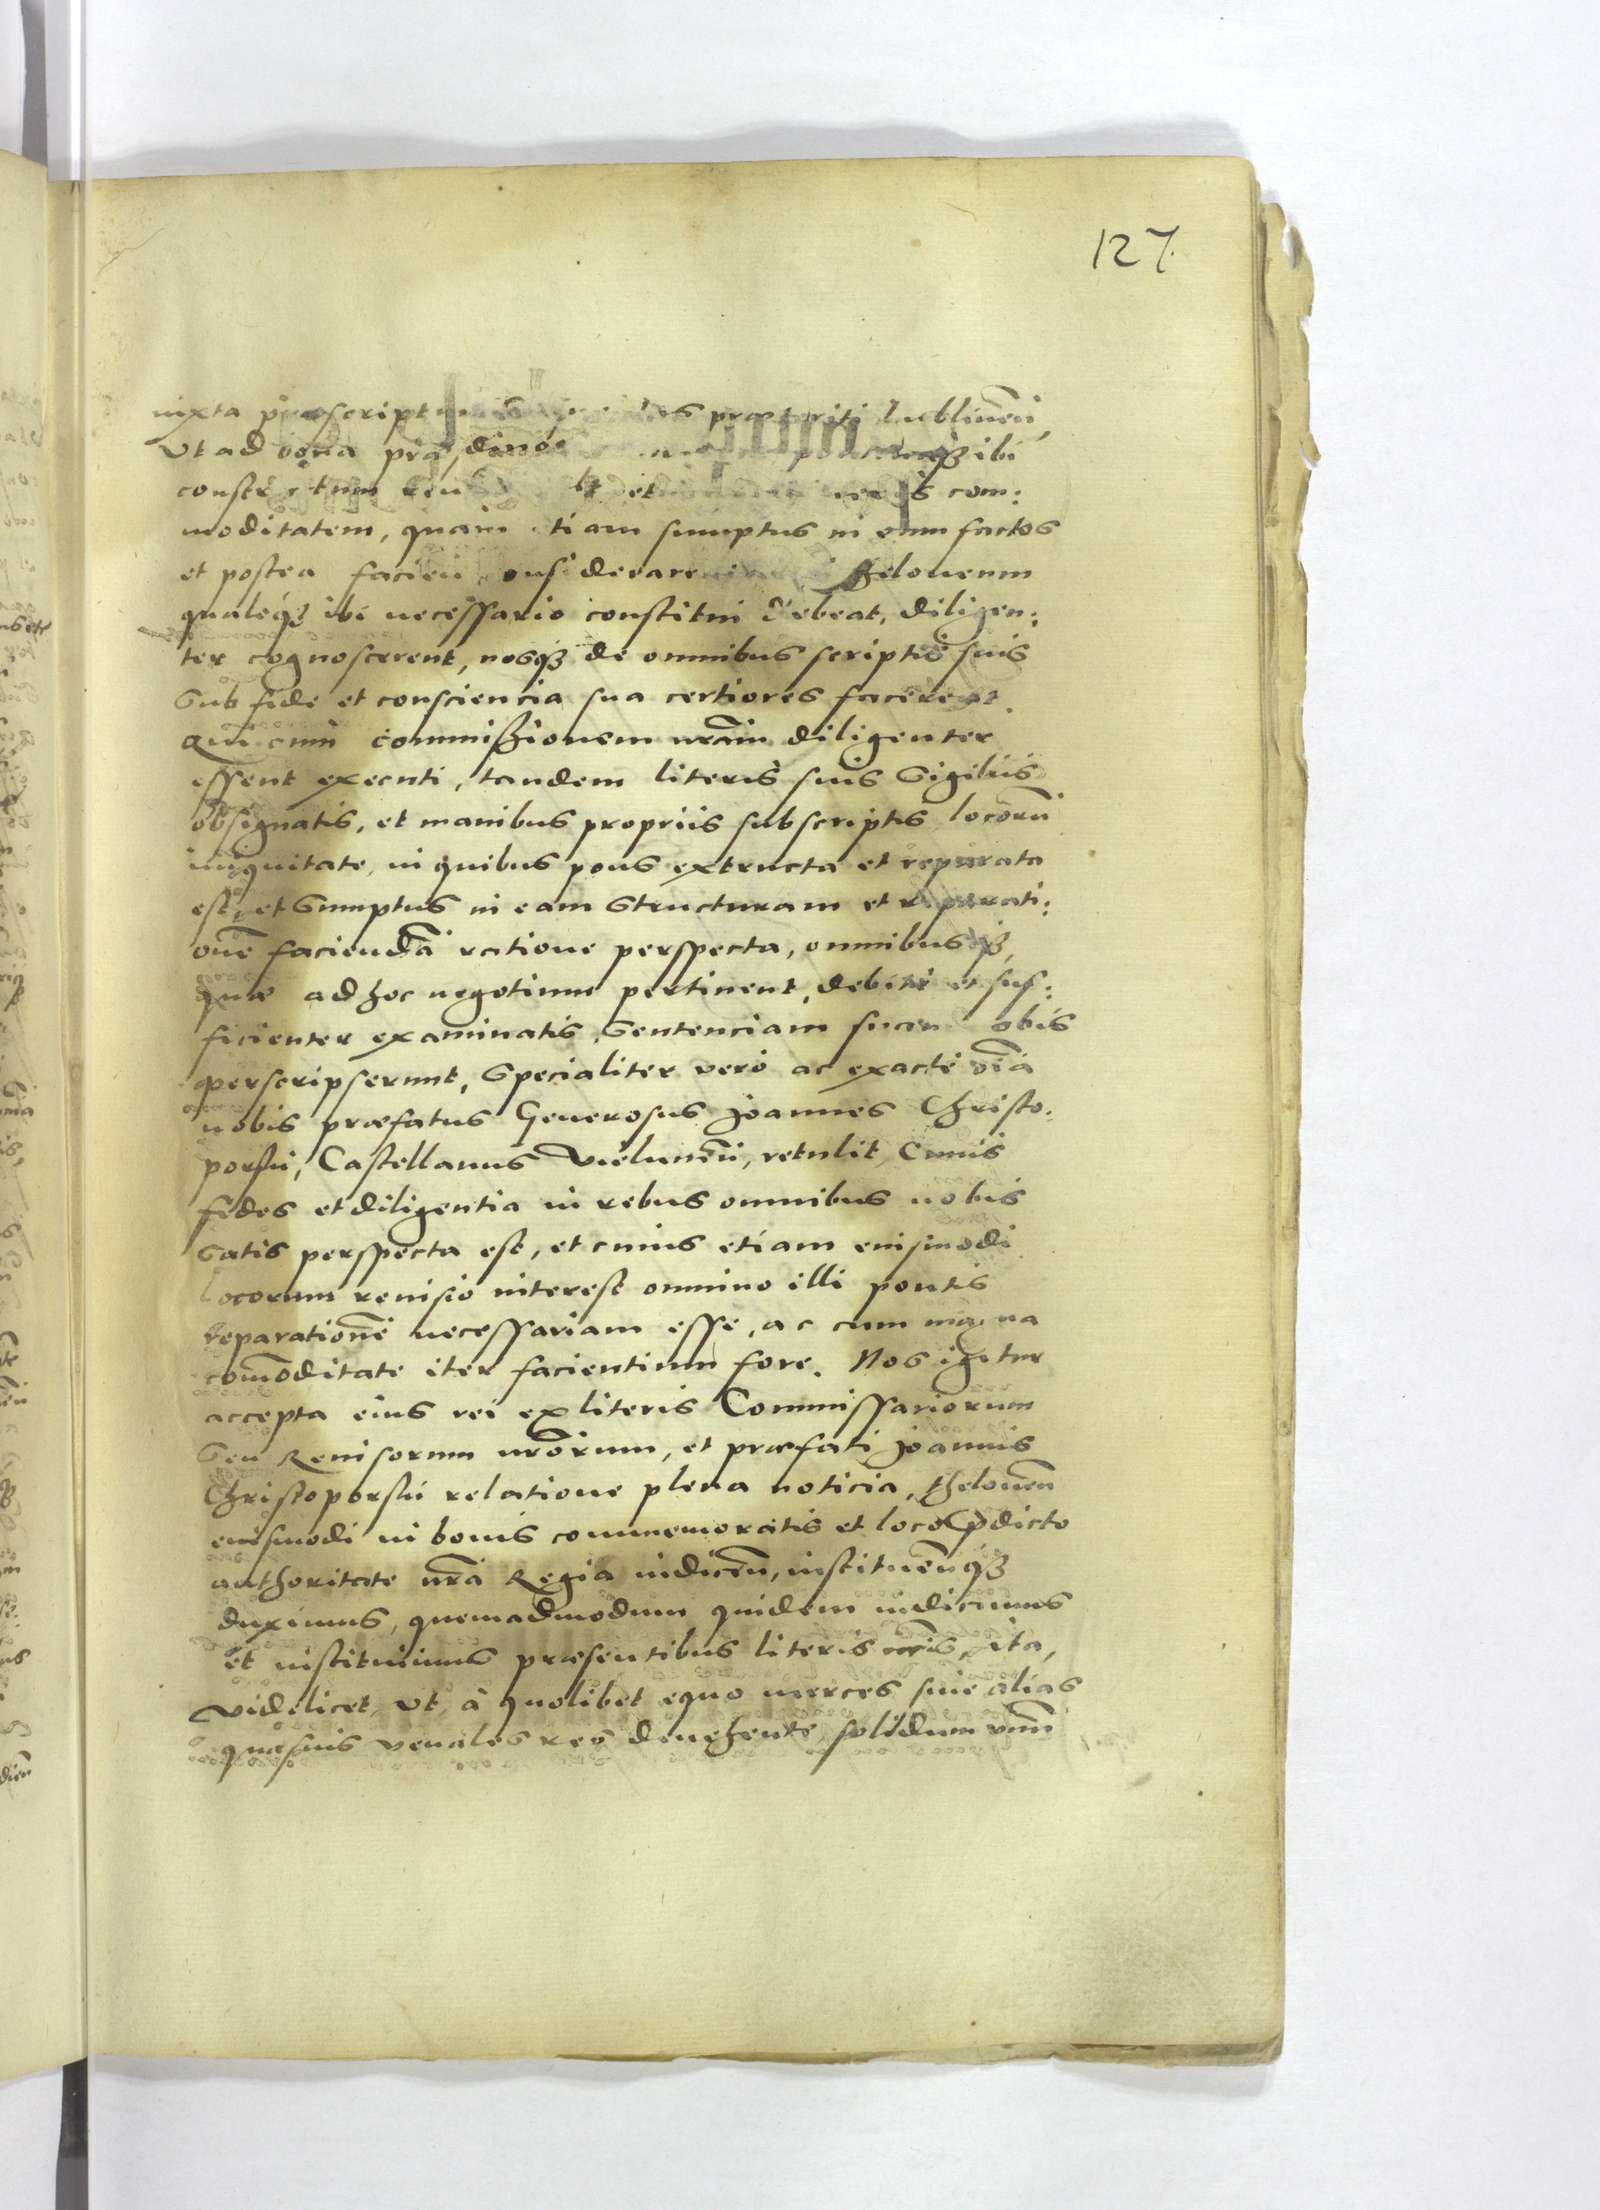 127
iuxta præscriptum præteriti Lublinen̄,
Ut ad bona præd ibi
constructum com:
moditatem, quam etiam sumptus in eum factos
et postea facien considerare theloneum
qualeq̃ʒ ibi necessario constitui debeat, diligen:
ter cognoscerent, nosqʒ de omnibus scriptis suis
sub fide et consciencia sua certiores facerent.
Qui cum commißionem nrām diligenter
essent executi, tandem literis suis Sigillis
obsignatis, et manibus propriis subscriptis locorū
iniquitate, in quibus pons extructa et reparata
est, et Sumptus in eam Structuram et reparati:
onē faciendā ratione perspecta, omnibusqʒ,
quæ ad hoc negotium pertinent, debite et suf:
ficienter examinatis, Sentenciam suam nobis
perscripserunt, Specialiter vero ac exactè oīa
nobis præfatus Generosus Joannes Christo:
porski, Castellanus Vielunen̄, retulit, Cuius
fides et diligentia in rebus omnibus nobis
satis perspecta est, et cuius etiam euismodi
locorum reuisio interest omnino illi pontis
reparationē necessariam esse, ac cum magna
com̄oditate iter facientium fore. Nos igitur
accepta eius rei ex literis Commissariorum
seu Reuisorum nrōrum, et præfati Joannis
Christoporski relatione plena noticia, theloneū
euismodi in bonis commemoratis et loco p̄dicto
authoritate nrā Regia indicen̄, instituen̄qʒ
duximus, quemadmodum quidem indicimus
et instituimus præsentibus literis nrīs, ita,
videlicet, ut à quolibet equo merces siue alias
quasuis venales res deuehente, solidum vnū